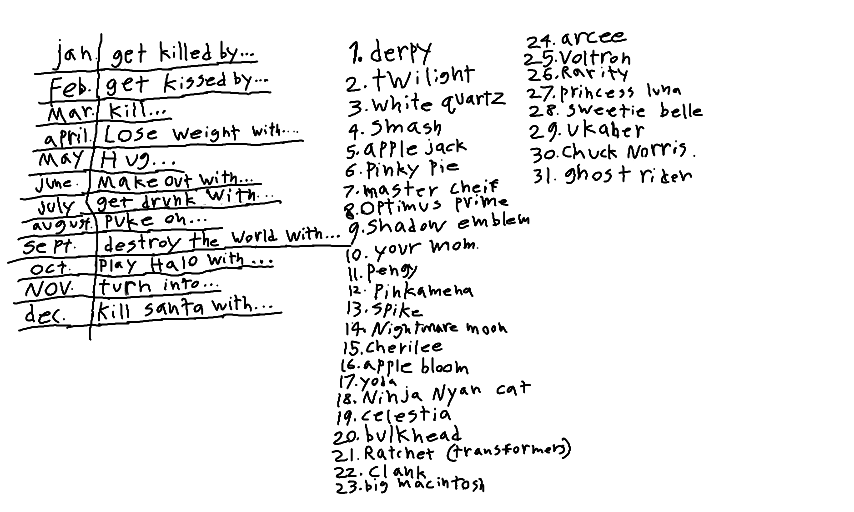 jan. get killed by...
Feb. get kissed by...
Mar. kill...
april. Lose weight with...
May Hug...
June. Make out with...
july get drunk with...
august. Puke on...
Sept. destroy the World with...
oct. Play Halo with...
NOV. turn into...
dec. kill santa with...
1. derpy
2. twilight
3. white quartz
4. smash
5. apple jack
6. Pinky Pie
7. master cheif
8. Optimus prime
9. Shadow emblem
10. your mom.
11. pengy
12. Pinkamena
13. Spike
14. Nightmare moon
15. cherilee
16. apple bloom
17. yoda
18. Ninja Nyan cat
19. celestia
20. bulkhead
21. Ratchet (transformers)
22. Clank
23. big macintosh
24. arcee
25. Voltron
26. Rarity
27. princess luna
28. sweetie belle
29. ukaher
30. Chuck Norris.
31. ghost rider